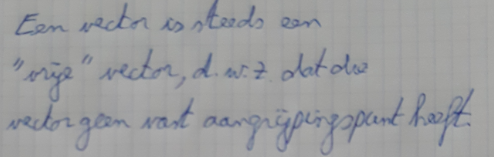 Een vector is steeds een
"vrije" vector, d.w.z. dat die
vector geen vast aangrijpingspunt heeft.